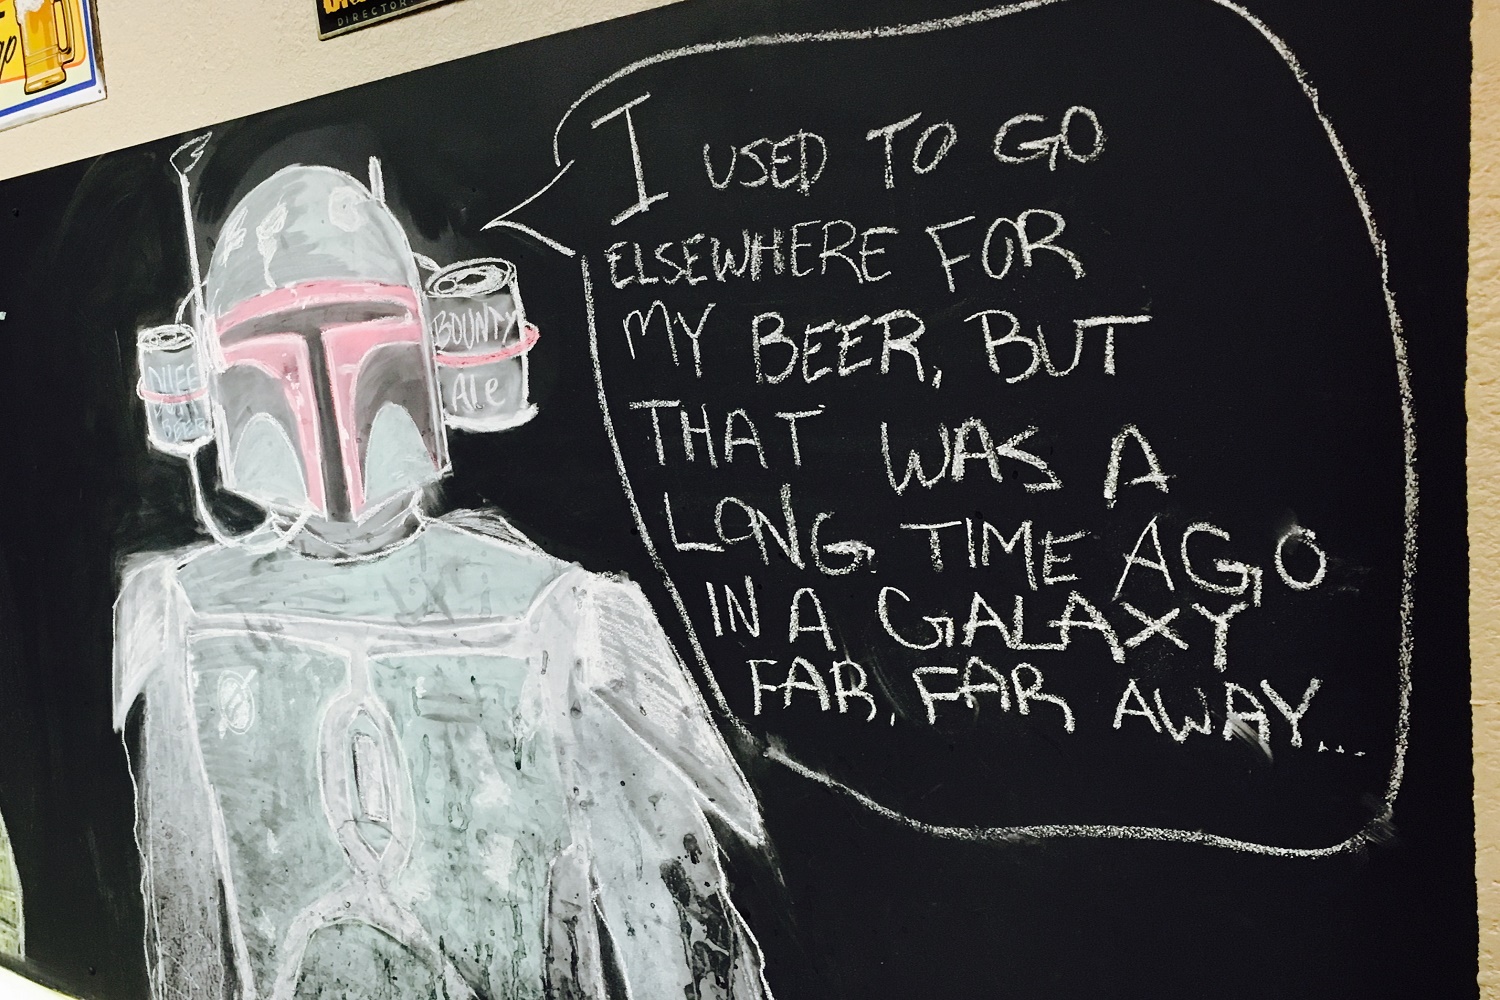 DIRECTOR
I USED TO GO
ELSEWHERE FOR
MY BEER, BUT
THAT WAS A
LONG TIME AGO
IN A GALAXY
FAR, FAR AWAY...
BOUNTY
Ale
BEER